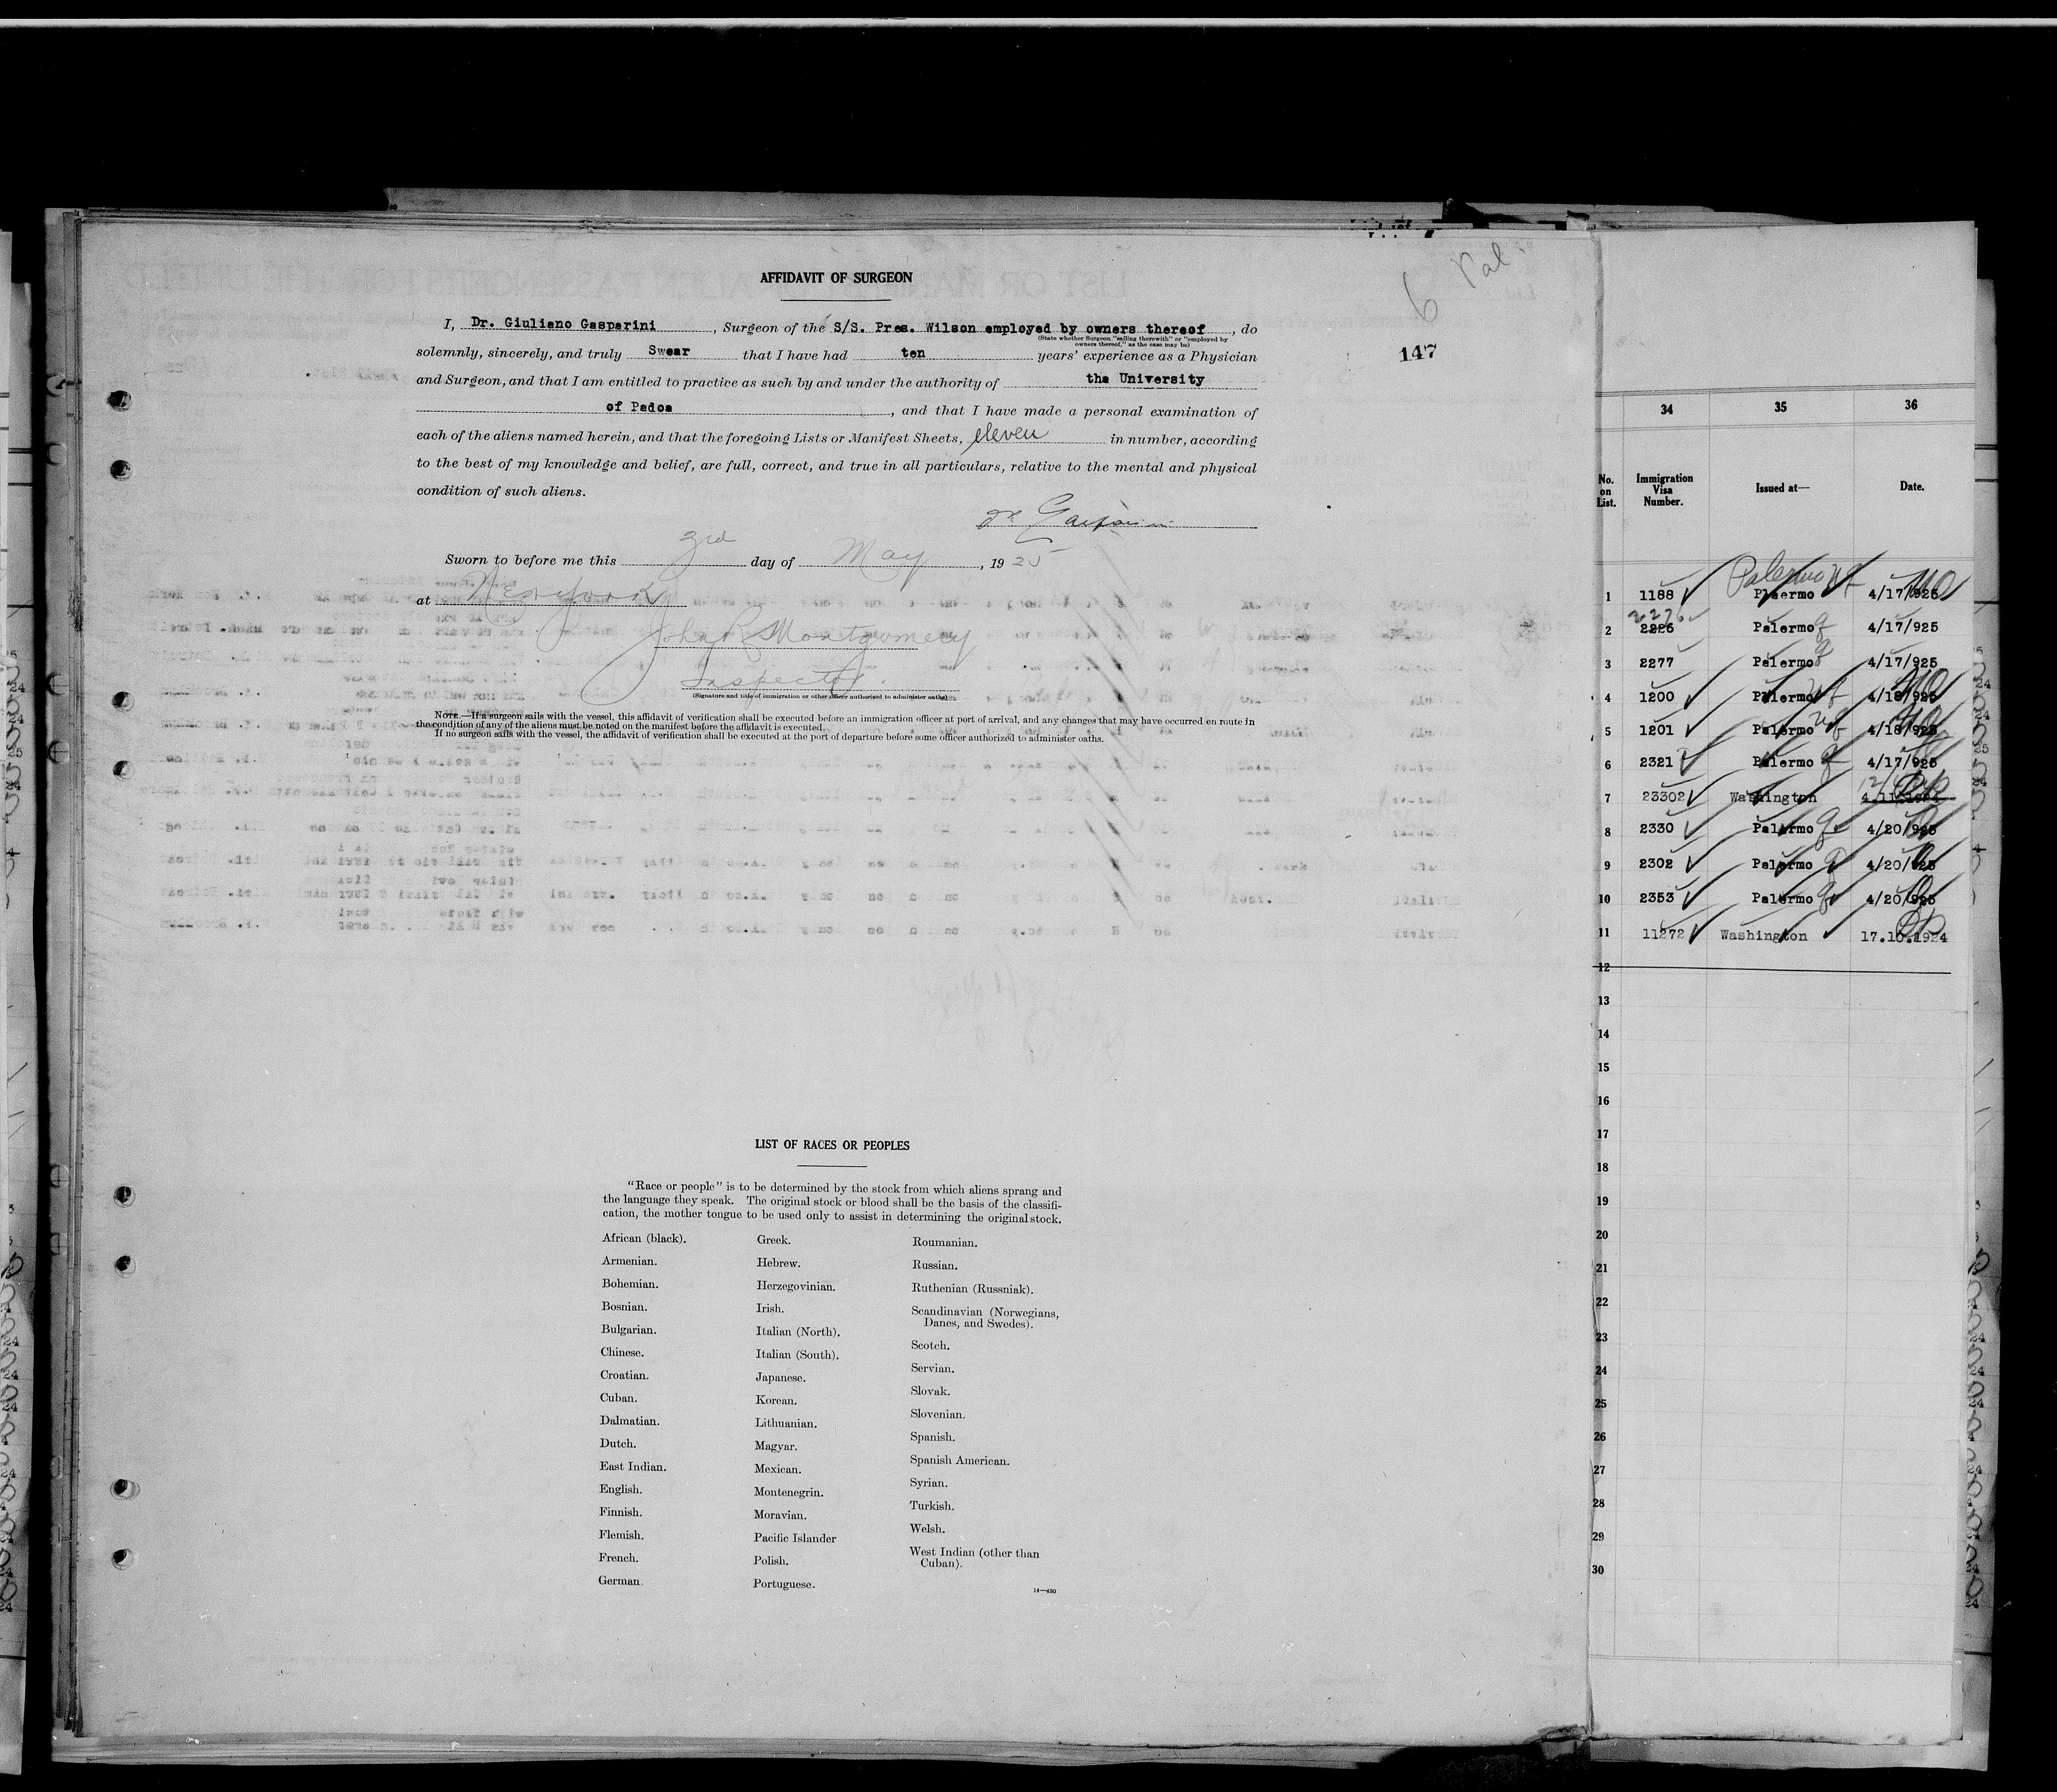 6 Pal.
147
AFFIDAVIT OF SURGEON
I, Dr. Giuliano Gasparini, Surgeon of the S/S. Pres. Wilson employed by owners thereof, do
(State whether Surgeon "sailing therewith" or "employed by
owners thereof," as the case may be)
solemnly, sincerely, and truly Swear that I have had ten years' experience as a Physician
and Surgeon, and that I am entitled to practice as such by and under the authority of the University
of Padoa, and that I have made a personal examination of
each of the aliens named herein, and that the foregoing Lists or Manifest Sheets, eleven in number, according
to the best of my knowledge and belief, are full, correct, and true in all particulars, relative to the mental and physical
condition of such aliens.
Dr Gasparini
Sworn to before me this 3rd day of May, 1925
at New York
John R Montgomery
Inspector.
(Signature and title of immigration or other officer authorized to administer oaths)
NOTE.—If a surgeon sails with the vessel, this affidavit of verification shall be executed before an immigration officer at port of arrival, and any changes that may have occurred en route in
the condition of any of the aliens must be noted on the manifest before the affidavit is executed.
If no surgeon sails with the vessel, the affidavit of verification shall be executed at the port of departure before some officer authorized to administer oaths.
LIST OF RACES OR PEOPLES
"Race or people" is to be determined by the stock from which aliens sprang and
the language they speak. The original stock or blood shall be the basis of the classifi-
cation, the mother tongue to be used only to assist in determining the original stock.
African (black).
Armenian.
Bohemian.
Bosnian.
Bulgarian.
Chinese.
Croatian.
Cuban.
Dalmatian.
Dutch.
East Indian.
English.
Finnish.
Flemish.
French.
German.
Greek.
Hebrew.
Herzegovinian.
Irish.
Italian (North).
Italian (South).
Japanese.
Korean.
Lithuanian.
Magyar.
Mexican.
Montenegrin.
Moravian.
Pacific Islander
Polish.
Portuguese.
Roumanian.
Russian.
Ruthenian (Russniak).
Scandinavian (Norwegians,
Danes, and Swedes).
Scotch.
Servian.
Slovak.
Slovenian.
Spanish.
Spanish American.
Syrian.
Turkish.
Welsh.
West Indian (other than
Cuban).
14—430
34 35 36
No. on List. Immigration Visa Number. Issued at— Date.
Palermo
1 1188 Plaermo 4/17/925
2276
2 2226 Palermo 4/17/925
3 2277 Palermo 4/17/925
4 1200 Palermo 4/18/925
5 1201 Palermo 4/18/925
6 2321 Palermo 4/17/925
7 23302 Washington 4.11.1924
8 2330 Palermo 4/20/925
9 2302 Palermo 4/20/925
10 2353 Palermo 4/20/925
11 11272 Washington 17.10.1924
12
13
14
15
16
17
18
19
20
21
22
23
24
25
26
27
28
29
30